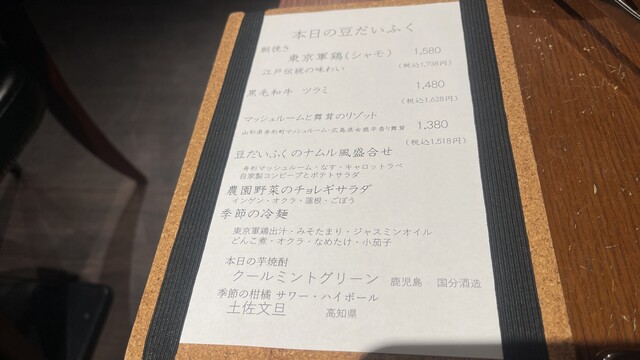 本日の豆だいふく
網焼き
東京軍鶏(シャモ) 1,580
江戸伝統の味わい (税込1,738円)
黒毛和牛 ツラミ 1,480
(税込1,628円)
マッシュルームと舞茸のリゾット
山形県舟形町マッシュルーム・広島県安芸 香り舞茸 1,380
(税込1,518円)
豆だいふくのナムル風盛合せ
舟形マッシュルーム・なす・キャロットラペ
自家製コンビーフとポテトサラダ
農園野菜のチョレギサラダ
インゲン・オクラ・蓮根・ごぼう
季節の冷麺
東京軍鶏出汁・みそたまり・ジャスミンオイル
どんこ煮・オクラ・なめたけ・小茄子
本日の芋焼酎
クールミントグリーン 鹿児島 国分酒造
季節の柑橘 サワー・ハイボール
土佐文旦 高知県